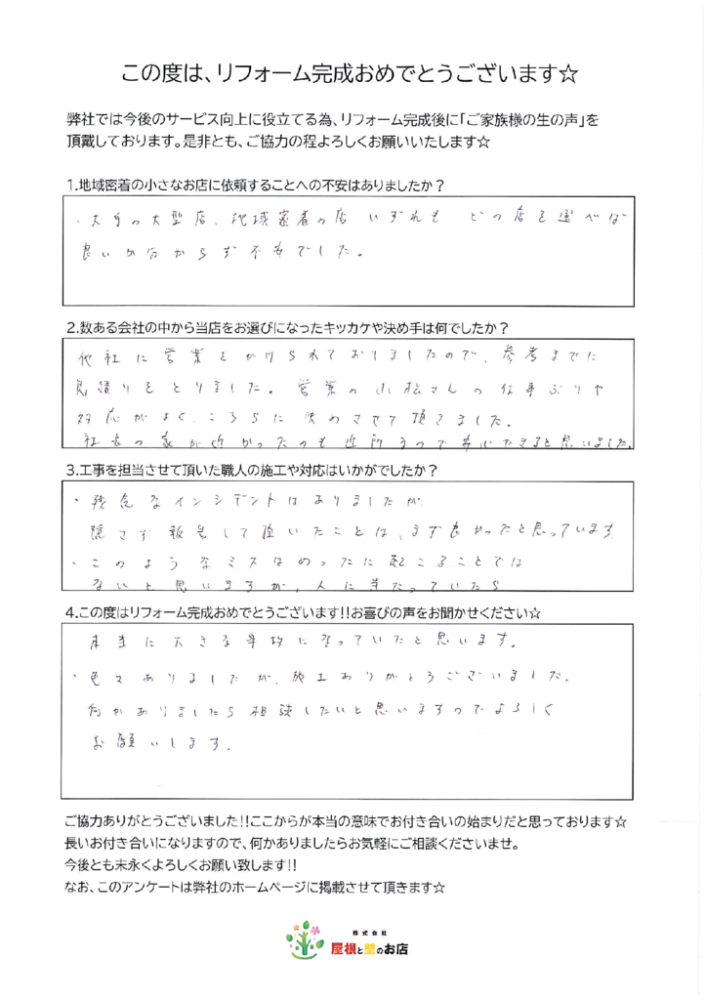 この度は、リフォーム完成おめでとうございます☆
弊社では今後のサービス向上に役立てる為、リフォーム完成後に「ご家族様の生の声」を
頂戴しております。是非とも、ご協力の程よろしくお願いいたします☆
1.地域密着の小さなお店に依頼することへの不安はありましたか？
・大手の大型店、地域密着の店 いずれも どの店を選べば
良いか分からず不安でした。
2.数ある会社の中から当店をお選びになったキッカケや決め手は何でしたか？
他社に営業をかけられておりましたので、参考までに
見積りをとりました。営業の小松さんの仕事ぶりや
対応がよく、こちらに決めさせて頂きました。
社長の家が近かったのも近所なので安心できると思いました。
3.工事を担当させて頂いた職人の施工や対応はいかがでしたか？
・残念なインシデントはありましたが、
隠さず報告して頂いたことは、まず良かったと思っています
・このようなミスはめったに起こることでは
ないと思いますが、人に当たっていたら
4.この度はリフォーム完成おめでとうございます!!お喜びの声をお聞かせください☆
本当に大きな事故になっていたと思います。
・色々ありましたが、施工ありがとうございました。
何かありましたら相談したいと思いますのでよろしく
お願いします。
ご協力ありがとうございました!!ここからが本当の意味でお付き合いの始まりだと思っております☆
長いお付き合いになりますので、何かありましたらお気軽にご相談くださいませ。
今後とも末永くよろしくお願い致します!!
なお、このアンケートは弊社のホームページに掲載させて頂きます☆
株式会社
屋根と壁のお店